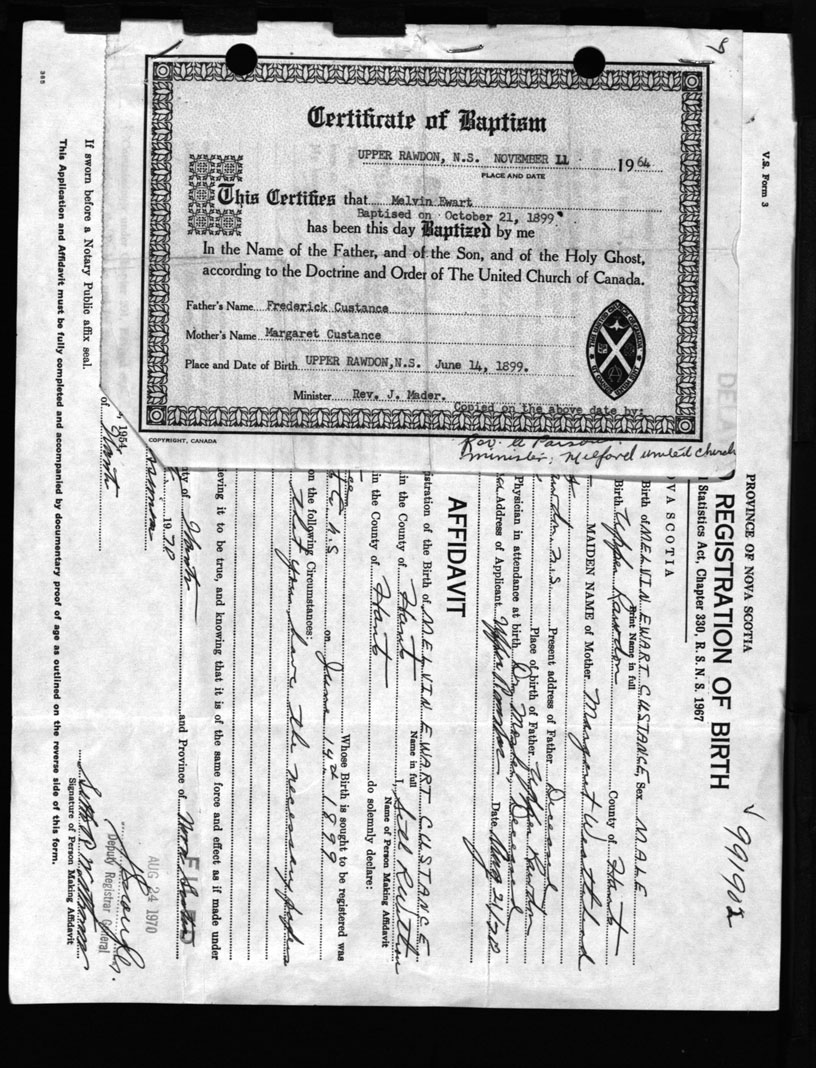 9
Certificate of Baptism
UPPER RAWDON, N.S. NOVEMBER 11 1964
PLACE AND DATE
This Certifies that Melvin Ewart
Baptised on October 21, 1899
has been this day Baptized by me
In the Name of the Father, and of the Son, and of the Holy Ghost,
according to the Doctrine and Order of The United Church of Canada.
Father's Name Frederick Custance
Mother's Name Margaret Custance
Place and Date of Birth UPPER RAWDON, N.S. June 14, 1899.
Minister Rev. J. Mader.
Copied on the above date by:
COPYRIGHT, CANADA
Rev. A Parsons.
minister, Milford united church
V.S. Form 3
991902
PROVINCE OF NOVA SCOTIA
REGISTRATION OF BIRTH
Statistics Act, Chapter 330, R. S. N. S. 1967
OVA SCOTIA
Birth of MELVIN EWART CUSTANCE Sex MALE
Print Name in full
Birth Upper Rawdon County of Hants
MAIDEN NAME of Mother Margaret
N.S. Present address of Father Deceased
Place of birth of Father Upper Rawdon
Physician in attendance at birth Dr. Deceased
Address of Applicant Upper Rawdon Date Aug 21/70
AFFIDAVIT
istration of the Birth of MELVIN EWART CUSTANCE
Name in full
in the County of Hants I, Seth R
Name of Person Making Affidavit
in the County of Hants do solemnly declare:
Whose Birth is sought to be registered was
N.S on June 14th 1899
on the following Circumstances:
That you have the necessary papers
ieving it to be true, and knowing that it is of the same force and effect as if made under
ty of Hants and Province of Nova Scotia
1970
FILED
AUG 24 1970
Deputy Registrar General
1954
of Hants
Signature of Person Making Affidavit
If sworn before a Notary Public affix seal.
This Application and Affidavit must be fully completed and accompanied by documentary proof of age as outlined on the reverse side of this form.